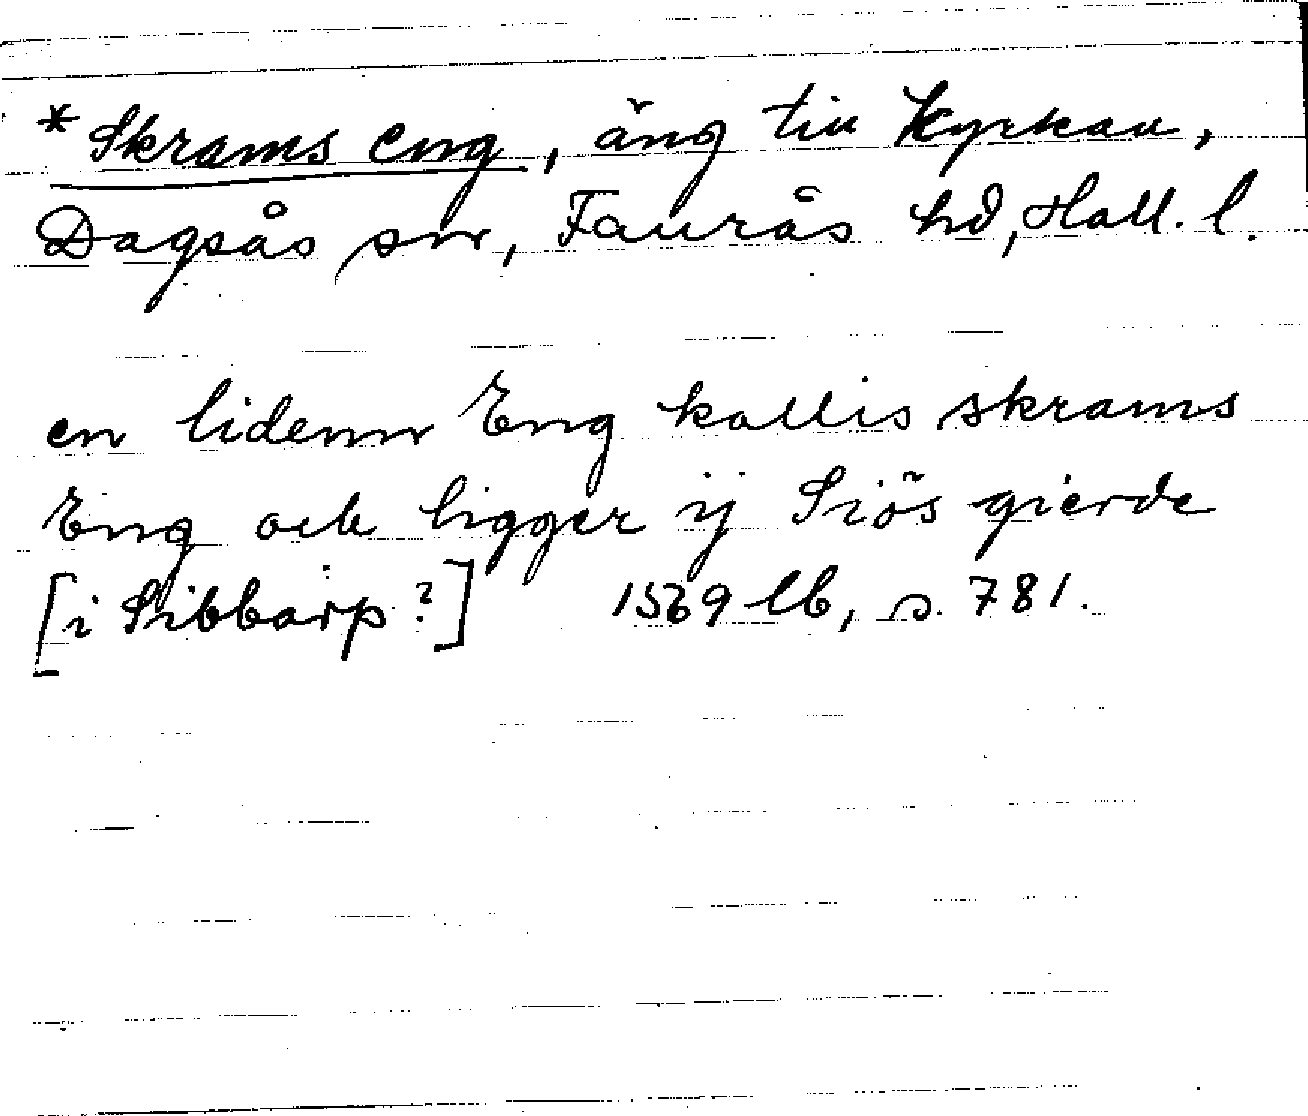 * Skrams eng, äng till Kyrkan,
Dagsås sn, Faurås hd, Hall. l.
en lidenn Eng kallis skrams
Eng och ligger ij Siös gierde
[i Sibbarp?] 1569 lb, s. 781.